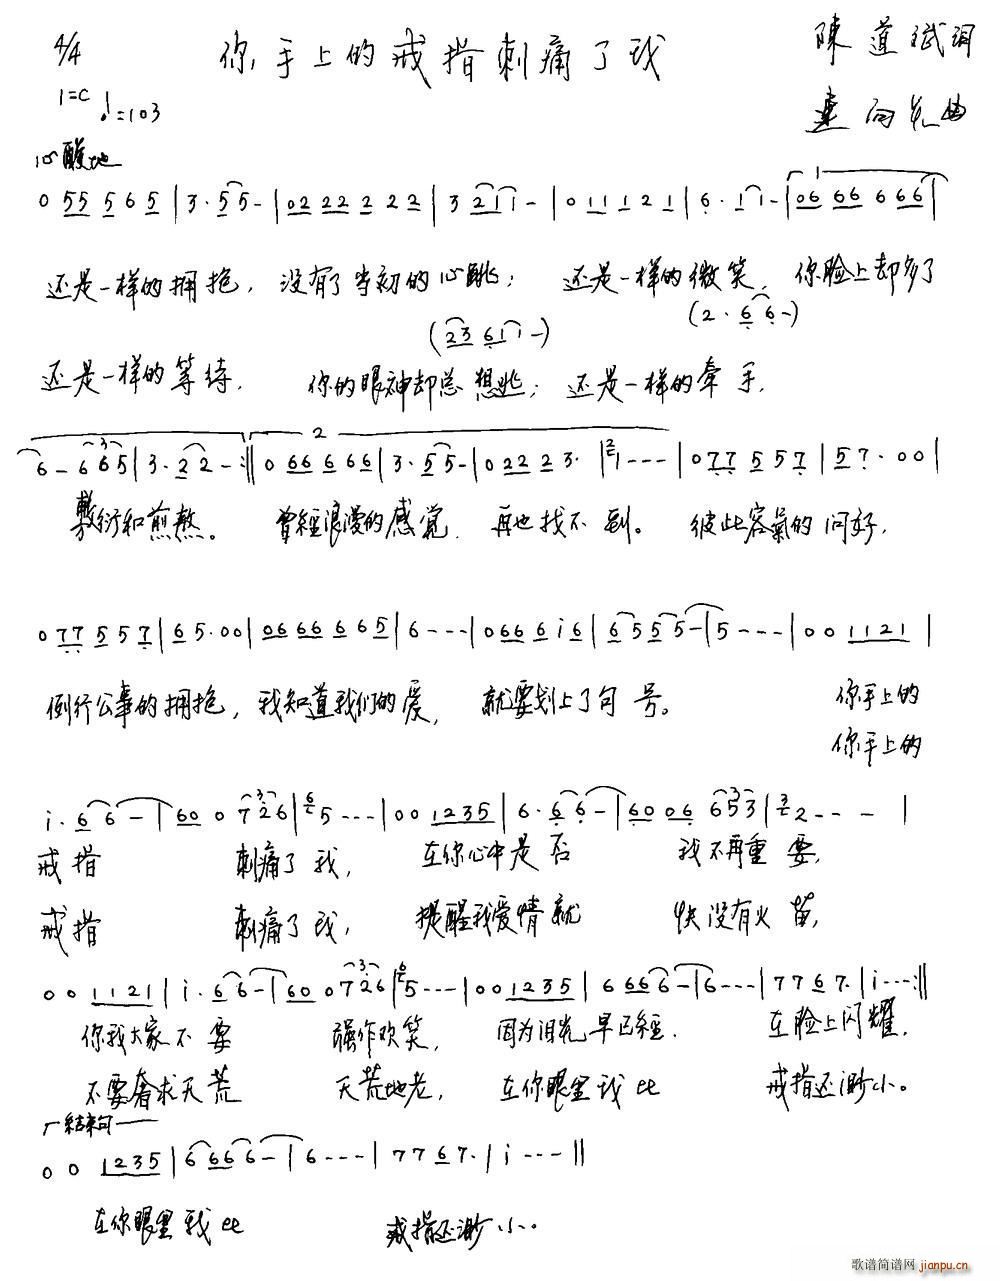 4/4 你手上的戒指刺痛了我 陳道斌词
1=C ♩=103 曲
心酸地
0 55 5 6 5 | 3 · 5 5 - | 02 22 2 2 2 | 3 2 1 1 - | 0 1 1 1 2 1 | 6 · 1 1 - | 06 66 6 66 |
还是一样的拥抱, 没有了当初的心跳; 还是一样的微笑, 你脸上却多了
(23 6 1 1 -) (2 · 6 6 -)
还是一样的等待, 你的眼神却总想逃; 还是一样的牵手,
6 - 6 6 5 | 3 · 2 2 - :|| 0 66 6 6 6 | 3 · 5 5 - | 0 22 2 3 · | 1 - - - | 0 77 5 5 7 | 5 7 · 0 0 |
敷衍和煎熬。 曾經浪漫的感觉, 再也找不到。 彼此客氣的问好,
0 77 5 5 7 | 6 5 · 0 0 | 06 66 6 6 5 | 6 - - - | 0 66 6 i 6 | 6 5 5 5 - | 5 - - - | 0 0 1 1 2 1 |
例行公事的拥抱, 我知道我们的爱, 就要划上了句号。 你手上的
你手上的
i · 6 6 - | 60 0 7 2 6 | 5 - - - | 0 0 1 2 3 5 | 6 · 6 6 - | 60 06 6 5 3 | 2 - - - |
戒指 刺痛了我, 在你心中是否 我不再重要,
戒指 刺痛了我, 提醒我爱情就 快没有火苗,
0 0 1 1 2 1 | i · 6 6 - | 60 0 7 2 6 | 5 - - - | 0 0 1 2 3 5 | 6 6 6 6 - | 6 - - - | 7 7 6 7 · | i - - - :||
你我大家不要 強作欢笑, 因为泪光早已經 在脸上闪耀,
不要奢求天荒 天荒地老, 在你眼里我比 戒指还渺小。
结束句
0 0 1 2 3 5 | 6 6 6 6 - | 6 - - - | 7 7 6 7 · | i - - - ||
在你眼里我比 戒指还渺小。
歌谱简谱网 jianpu.cn